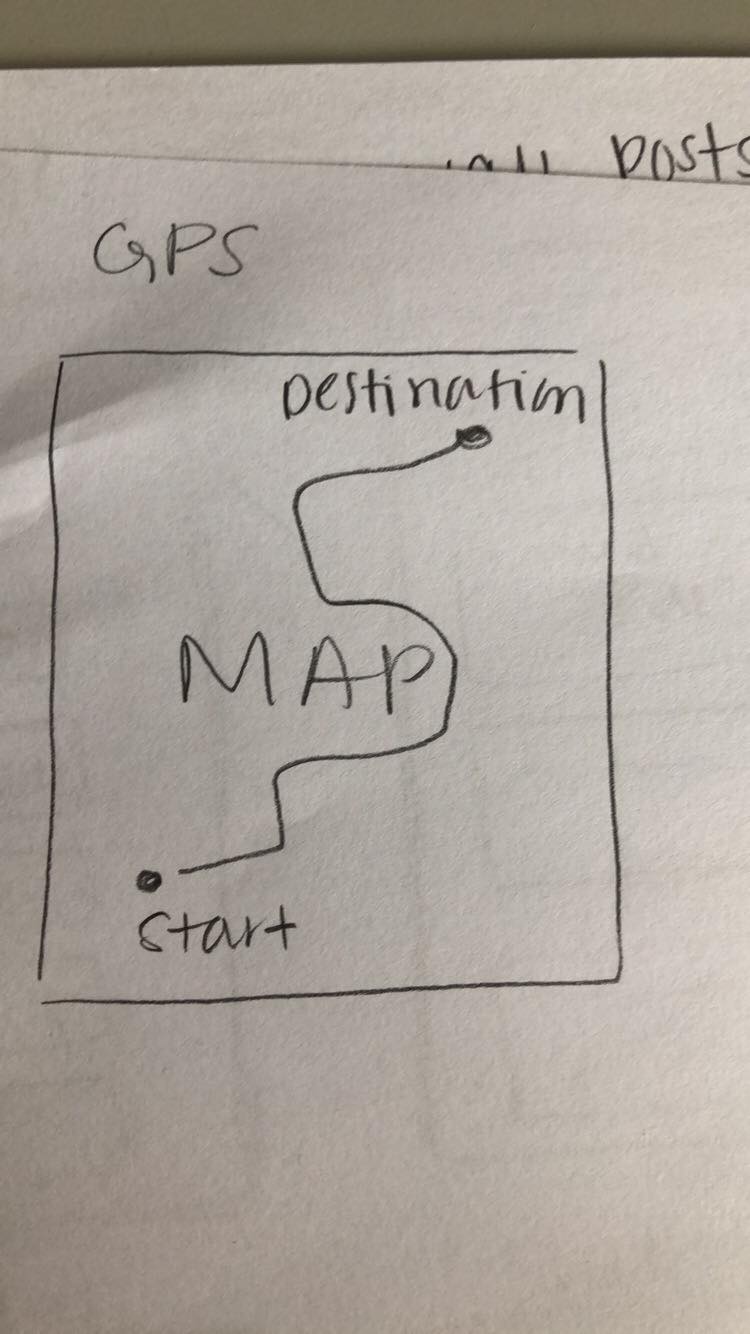 posts
GPS
Destination
MAP
start